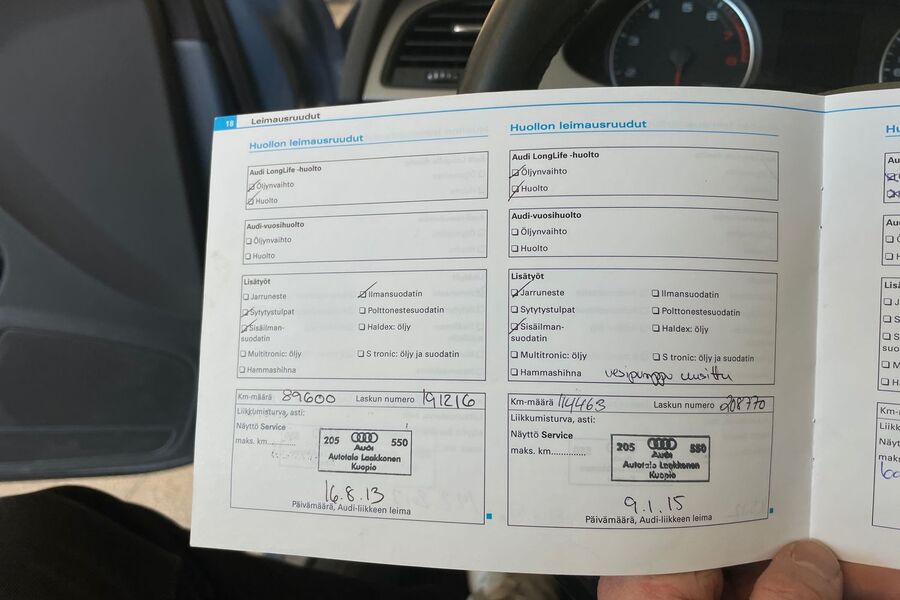 18 Leimausruudut
Huollon leimausruudut
Audi LongLife -huolto
Öljynvaihto
Huolto
Audi-vuosihuolto
Öljynvaihto
Huolto
Lisätyöt
Jarruneste
Ilmansuodatin
Sytytystulpat
Polttonestesuodatin
Sisäilman-
suodatin
Haldex: öljy
Multitronic: öljy
S tronic: öljy ja suodatin
Hammashihna
Km-määrä 89600 Laskun numero 191216
Liikkumisturva, asti:
Näyttö Service
maks. km............
205 Audi 550
Autotalo Laakkonen
Kuopio
16.8.13
Päivämäärä, Audi-liikkeen leima
Huollon leimausruudut
Audi LongLife -huolto
Öljynvaihto
Huolto
Audi-vuosihuolto
Öljynvaihto
Huolto
Lisätyöt
Jarruneste
Ilmansuodatin
Sytytystulpat
Polttonestesuodatin
Sisäilman-
suodatin
Haldex: öljy
Multitronic: öljy
S tronic: öljy ja suodatin
Hammashihna vesipumppu uusittu
Km-määrä 114463 Laskun numero 208770
Liikkumisturva, asti:
Näyttö Service
maks. km............
205 Audi 550
Autotalo Laakkonen
Kuopio
9.1.15
Päivämäärä, Audi-liikkeen leima